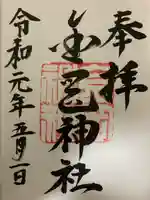 奉拝
金邑神社
令和元年五月一日